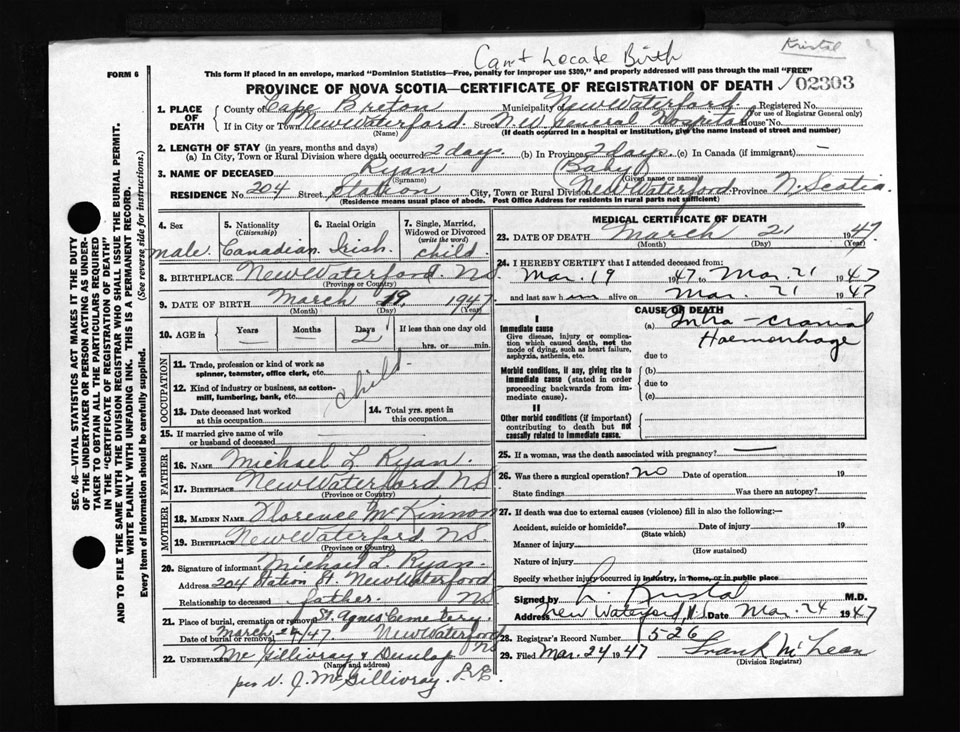 Kristal
Can't Locate Birth
FORM 6
This form if placed in an envelope, marked "Dominion Statistics—Free, penalty for improper use $300," and properly addressed will pass through the mail "FREE"
PROVINCE OF NOVA SCOTIA—CERTIFICATE OF REGISTRATION OF DEATH
02303
1. PLACE OF DEATH County of Cape Breton Municipality of New Waterford Registered No.
(For use of Registrar General only)
If in City or Town New Waterford Street N.W. General Hospital House No.
(Name) (If death occurred in a hospital or institution, give the name instead of street and number)
2. LENGTH OF STAY (in years, months and days)
(a) In City, Town or Rural Division where death occurred 2 days (b) In Province 2 days (c) In Canada (if immigrant) —
3. NAME OF DECEASED Ryan (Baby)
(Surname) (Given name or names)
RESIDENCE No. 204 Street Station City, Town or Rural Division New Waterford Province N. Scotia
(Residence means usual place of abode. Post Office Address for residents in rural parts not sufficient)
4. Sex male
5. Nationality (Citizenship) Canadian
6. Racial Origin Irish
7. Single, Married, Widowed or Divorced (write the word) child
8. BIRTHPLACE New Waterford NS
(Province or Country)
9. DATE OF BIRTH March 19 1947
(Month) (Day) (Year)
10. AGE in Years — Months — Days 2 If less than one day old
hrs. or min.
OCCUPATION
11. Trade, profession or kind of work as spinner, teamster, office clerk, etc.
12. Kind of industry or business, as cotton-mill, lumbering, bank, etc.
child
13. Date deceased last worked at this occupation
14. Total yrs. spent in this occupation
15. If married give name of wife or husband of deceased
FATHER
16. NAME Michael L Ryan
17. BIRTHPLACE New Waterford NS
(Province or Country)
MOTHER
18. MAIDEN NAME Florence McKinnon
19. BIRTHPLACE New Waterford NS.
(Province or Country)
20. Signature of informant Michael L. Ryan
Address 204 Station St. New Waterford
Relationship to deceased father. NS
21. Place of burial, cremation or removal St. Agnis Cemetery
Date of burial or removal March 24/47 New Waterford NS
22. Undertaker McGillivray & Dunlap
(Name and address)
per V. J. McGillivray
MEDICAL CERTIFICATE OF DEATH
23. DATE OF DEATH March 21 1947
(Month) (Day) (Year)
24. I HEREBY CERTIFY that I attended deceased from:
Mar. 19 1947 to Mar. 21 1947
and last saw him alive on Mar. 21 1947
CAUSE OF DEATH
I
Immediate cause
Give disease, injury or complication which caused death, not the mode of dying, such as heart failure, asphyxia, asthenia, etc.
(a) Intra-cranial
Haemorrhage
due to
Morbid conditions, if any, giving rise to immediate cause (stated in order proceeding backwards from immediate cause).
(b)
due to
(c)
II
Other morbid conditions (if important) contributing to death but not causally related to immediate cause.
25. If a woman, was the death associated with pregnancy? —
26. Was there a surgical operation? no Date of operation 19
State findings Was there an autopsy?
27. If death was due to external causes (violence) fill in also the following:—
Accident, suicide or homicide? Date of injury 19
(State which)
Manner of injury
(How sustained)
Nature of injury
Specify whether injury occurred in industry, in home, or in public place
Signed by Kristal M.D.
Address New Waterford, N.S. Date Mar. 24 1947
28. Registrar's Record Number 526
29. Filed Mar. 24 1947 Frank McLean
(Division Registrar)
SEC. 46—VITAL STATISTICS ACT MAKES IT THE DUTY
OF THE UNDERTAKER OR PERSON ACTING AS UNDER-
TAKER TO OBTAIN ALL THE PARTICULARS REQUIRED
IN THE "CERTIFICATE OF REGISTRATION OF DEATH"
AND TO FILE THE SAME WITH THE DIVISION REGISTRAR WHO SHALL ISSUE THE BURIAL PERMIT.
WRITE PLAINLY WITH UNFADING INK. THIS IS A PERMANENT RECORD.
Every item of information should be carefully supplied. (See reverse side for instructions.)